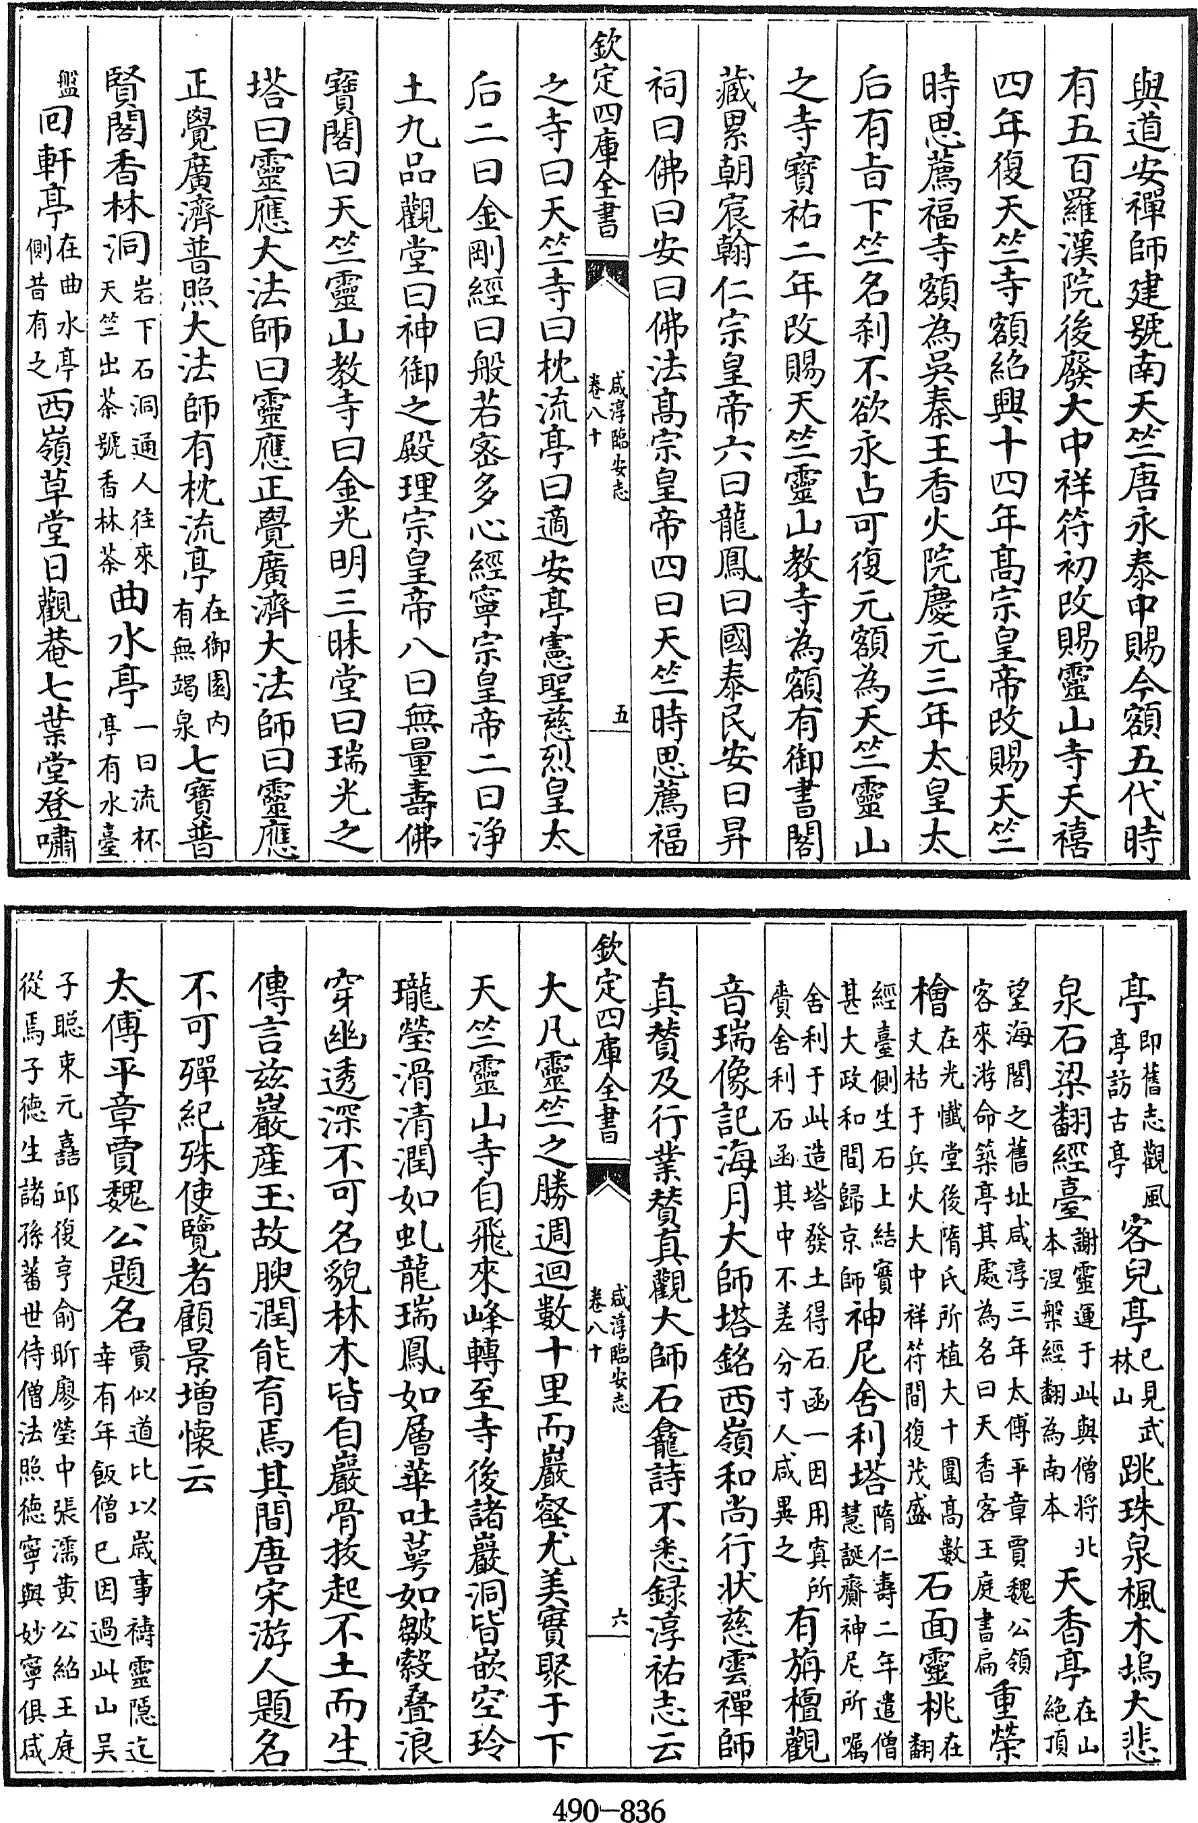 與道安禪師建號南天竺唐永泰中賜今額五代時
有五百羅漢院後廢大中祥符初改賜靈山寺天禧
四年復天竺寺額紹興十四年高宗皇帝改賜天竺
時思薦福寺額為吳秦王香火院慶元三年太皇太
后有旨下竺名刹不欲永占可復元額為天竺靈山
之寺寶祐二年改賜天竺靈山教寺為額有御書閣
藏累朝宸翰仁宗皇帝六曰龍鳳曰國泰民安曰昇
祠曰佛曰安曰佛法高宗皇帝四曰天竺時思薦福
欽定四庫全書
咸淳臨安志
卷八十
五
之寺曰天竺寺曰枕流亭曰適安亭憲聖慈烈皇太
后二曰金剛經曰般若宻多心經寧宗皇帝二曰淨
土九品觀堂曰神御之殿理宗皇帝八曰無量壽佛
寶閣曰天竺靈山教寺曰金光明三昧堂曰瑞光之
塔曰靈應大法師曰靈應正覺廣濟大法師曰靈應
正覺廣濟普照大法師有枕流亭在御園内有無竭泉七寶普
賢閣香林洞岩下石洞通人往來天竺出茶號香林茶曲水亭一曰流杯亭有水臺
盤回軒亭在曲水亭側昔有之西嶺草堂日觀菴七葉堂登嘯
亭即舊志觀風亭訪古亭客兒亭已見武林山跳珠泉楓木塢大悲
泉石梁翻經臺謝靈運于此與僧將北本涅槃經翻為南本天香亭在山絶頂
望海閣之舊址咸淳三年太傅平章賈魏公領客來游命築亭其處為名曰天香客王庭書扁重榮
檜在光懺堂後隋氏所植大十圍高數丈枯于兵火大中祥符間復茂盛石面靈桃在翻
經臺側生石上結實甚大政和間歸京師神尼舍利塔隋仁壽二年遣僧慧誕齎神尼所囑
舍利于此造塔發土得石函一因用寘所賫舍利石函其中不差分寸人咸異之有旃檀觀
音瑞像記海月大師塔銘西嶺和尚行状慈雲禪師
真贊及行業贊真觀大師石龕詩不悉録淳祐志云
欽定四庫全書
咸淳臨安志
卷八十
六
大凡靈竺之勝週迴數十里而巖壑尤美實聚于下
天竺靈山寺自飛來峰轉至寺後諸巖洞皆嵌空玲
瓏瑩滑清潤如虬龍瑞鳳如層華吐萼如皺縠叠浪
穿幽透深不可名貌林木皆自巖骨拔起不土而生
傳言兹巖産玉故腴潤能有焉其間唐宋游人題名
不可殫紀殊使覽者顧景增懷云
太傅平章賈魏公題名賈似道比以歲事禱靈隱迄幸有年飯僧已因過此山吳
子聰束元嚞邱復亨俞昕廖瑩中張濡黄公紹王庭從焉子德生諸孫蕃世侍僧法照德寧與妙寧俱咸
490-836